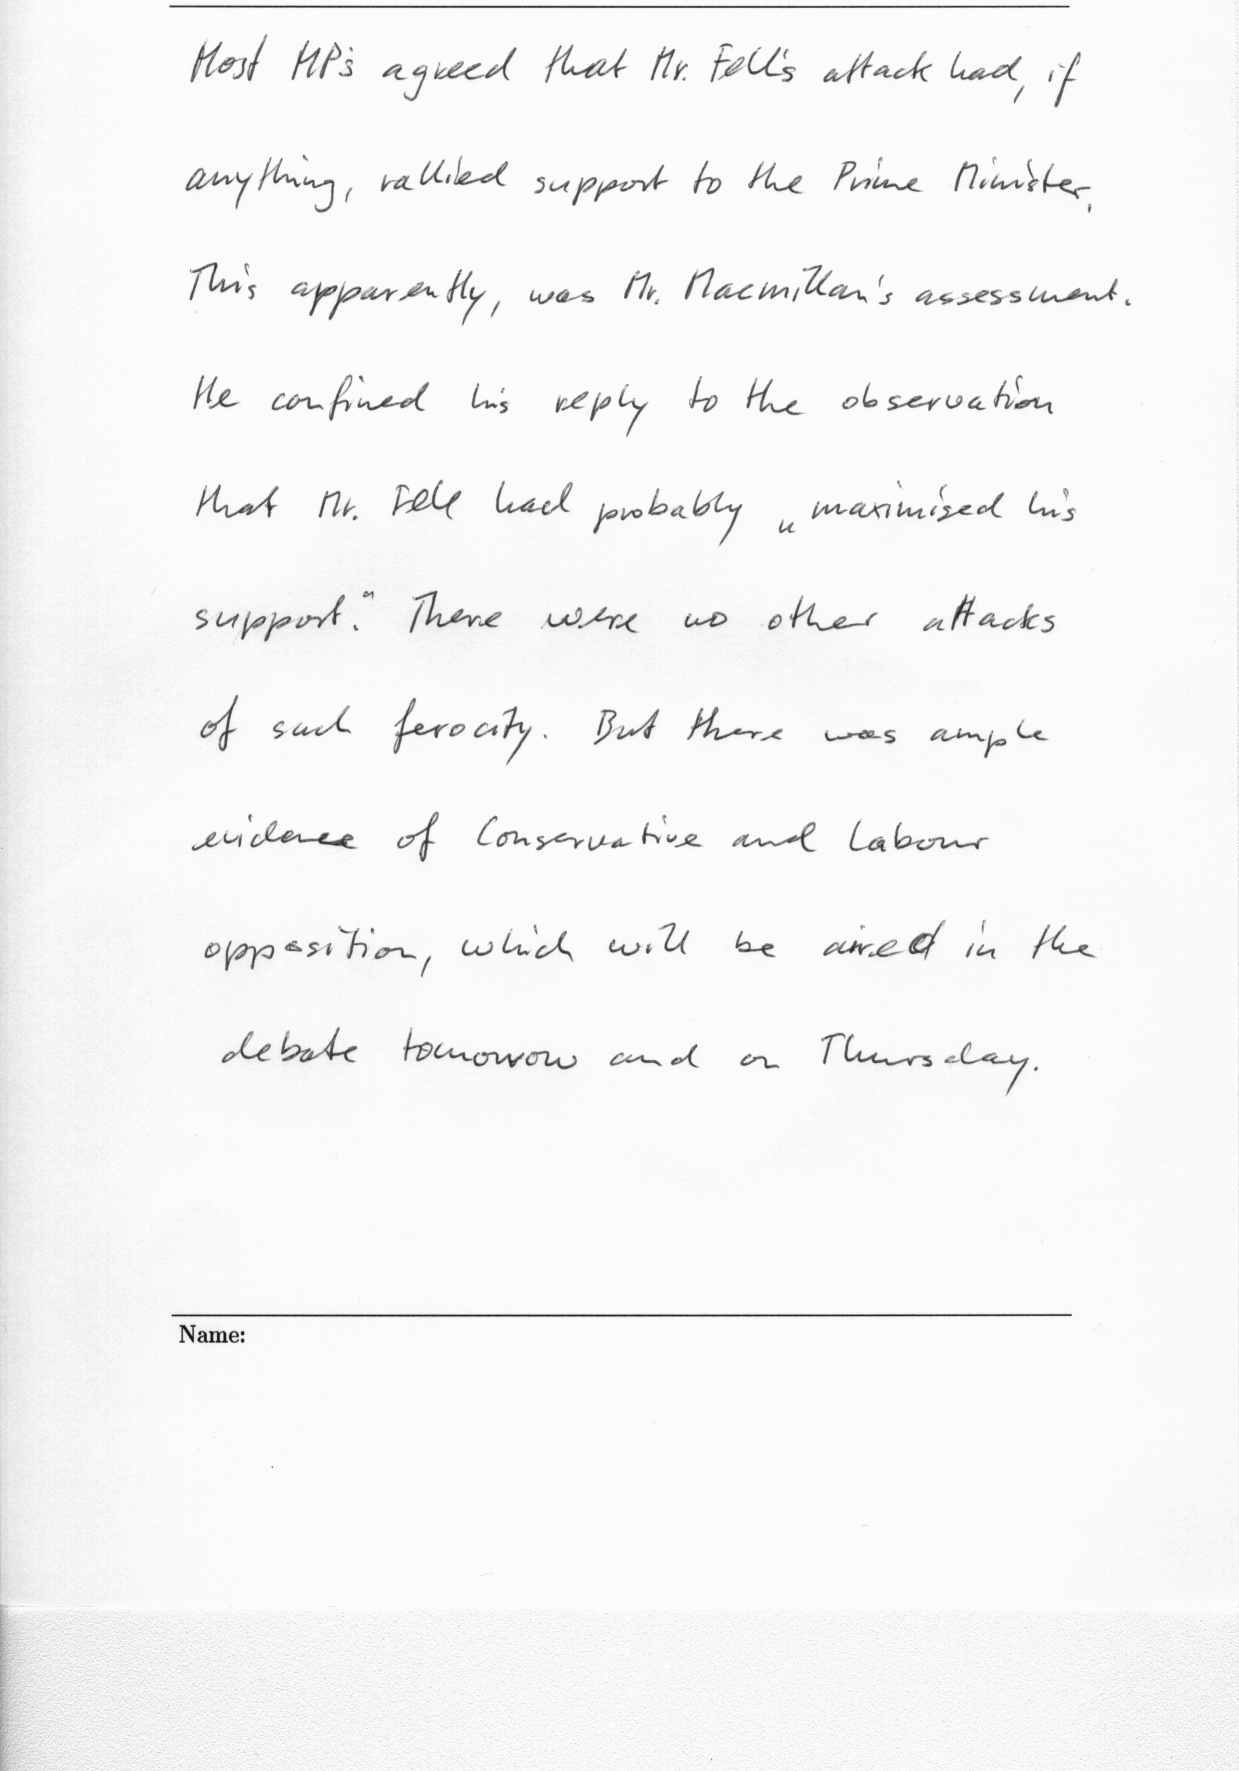 Most MP's agreed that Mr. Fell's attack had, if
anything, rallied support to the Prime Minister.
This apparently, was Mr. Macmillan's assessment.
He confined his reply to the observation
that Mr. Fell had probably „maximised his
support.“ There were no other attacks
of such ferocity. But there was ample
evidence of Conservative and Labour
opposition, which will be aired in the
debate tomorrow and on Thursday.
Name: